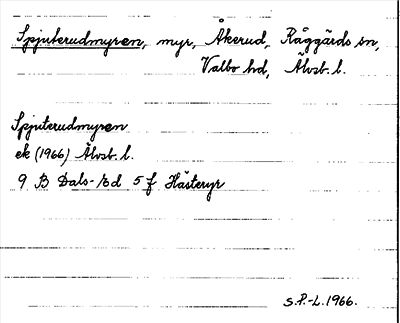 Spjuterudmyren, myr, Åkerud, Råggärds sn,
Valbo hd, Älvsb. l.
Spjuterudmyren
ek (1966) Älvsb. l.
9 B Dals-Ed 5 f Hästeryr
S.P.-L. 1966.